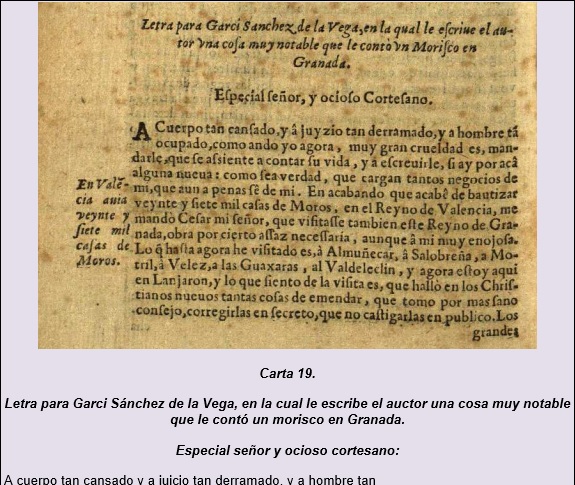 Letra para Garci Sanchez de la Vega, en la qual le escriue el au-
tor vna cosa muy notable que le contò vn Morisco en
Granada.
Especial señor, y ocioso Cortesano.
A Cuerpo tan cansado, y â juyzio tan derramado, y a hombre tã
ocupado, como ando yo agora, muy gran crueldad es, man-
darle, que se assiente a contar su vida, y â escreuirle, si ay por acâ
alguna nueua: como sea verdad, que cargan tantos negocios de
mi, que aun a penas sê de mi. En acabando que acabê de bautizar
veynte y siete mil casas de Moros, en el Reyno de Valencia, me
mandò Cesar mi señor, que visitasse tambien este Reyno de Gra-
nada, obra por cierto assaz necessaria, aunque â mi muy enojosa.
Lo q̃ hasta agora he visitado es, â Almuñecar, â Salobreña, a Mo-
tril, â Velez, a las Guaxaras, al Valdeleclin, y agora estoy aqui
en Lanjaron, y lo que siento de la visita es, que hallo en los Chris-
tianos nueuos tantas cosas de emendar, que tomo por mas sano
consejo, corregirlas en secreto, que no castigarlas en publico. Los
grandes
En Valẽ-
cia auia
veynte y
siete mil
casas de
Moros.
Carta 19.
Letra para Garci Sánchez de la Vega, en la cual le escribe el auctor una cosa muy notable
que le contó un morisco en Granada.
Especial señor y ocioso cortesano:
A cuerpo tan cansado y a juicio tan derramado, y a hombre tan